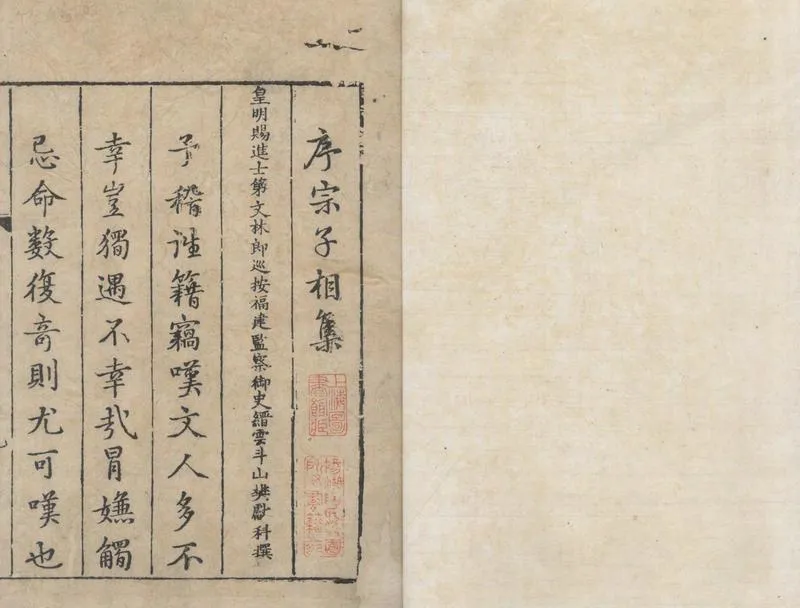 序宗子相集
上海圖書館藏
皇明賜進士第文林郎巡按福建監察御史縉雲斗山樊獻科撰
予稽往籍竊嘆文人多不
幸豈獨遇不幸哉冐嫌觸
忌命数復竒則尤可嘆也